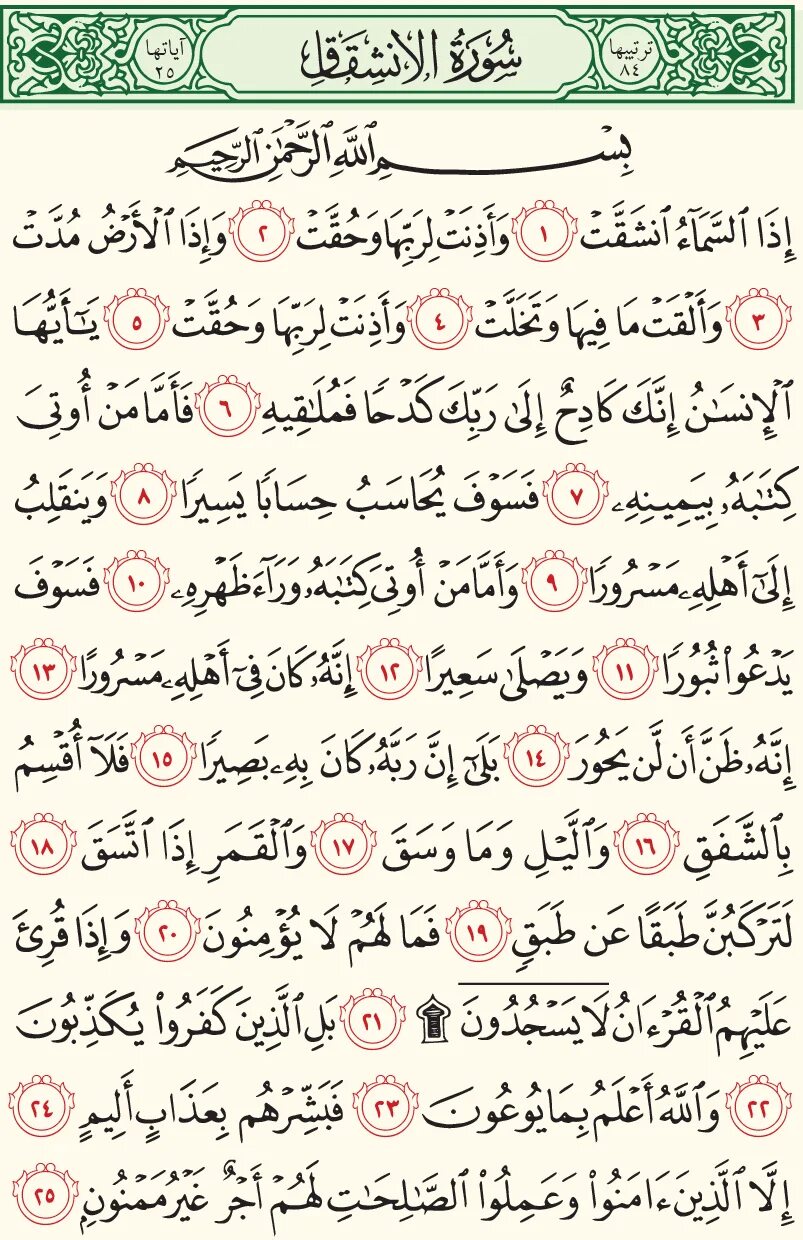 ترتيبها ٨٤ سُورَةُ الانشِقَاقِ آياتها ٢٥
بِسْمِ اللَّهِ الرَّحْمَٰنِ الرَّحِيمِ
إِذَا ٱلسَّمَآءُ ٱنشَقَّتْ ١ وَأَذِنَتْ لِرَبِّهَا وَحُقَّتْ ٢ وَإِذَا ٱلْأَرْضُ مُدَّتْ
٣ وَأَلْقَتْ مَا فِيهَا وَتَخَلَّتْ ٤ وَأَذِنَتْ لِرَبِّهَا وَحُقَّتْ ٥ يَـٰٓأَيُّهَا
ٱلْإِنسَـٰنُ إِنَّكَ كَادِحٌ إِلَىٰ رَبِّكَ كَدْحًا فَمُلَـٰقِيهِ ٦ فَأَمَّا مَنْ أُوتِىَ
كِتَـٰبَهُۥ بِيَمِينِهِۦ ٧ فَسَوْفَ يُحَاسَبُ حِسَابًا يَسِيرًا ٨ وَيَنقَلِبُ
إِلَىٰٓ أَهْلِهِۦ مَسْرُورًا ٩ وَأَمَّا مَنْ أُوتِىَ كِتَـٰبَهُۥ وَرَآءَ ظَهْرِهِۦ ١٠ فَسَوْفَ
يَدْعُوا۟ ثُبُورًا ١١ وَيَصْلَىٰ سَعِيرًا ١٢ إِنَّهُۥ كَانَ فِىٓ أَهْلِهِۦ مَسْرُورًا ١٣
إِنَّهُۥ ظَنَّ أَن لَّن يَحُورَ ١٤ بَلَىٰٓ إِنَّ رَبَّهُۥ كَانَ بِهِۦ بَصِيرًا ١٥ فَلَآ أُقْسِمُ
بِٱلشَّفَقِ ١٦ وَٱلَّيْلِ وَمَا وَسَقَ ١٧ وَٱلْقَمَرِ إِذَا ٱتَّسَقَ ١٨
لَتَرْكَبُنَّ طَبَقًا عَن طَبَقٍ ١٩ فَمَا لَهُمْ لَا يُؤْمِنُونَ ٢٠ وَإِذَا قُرِئَ
عَلَيْهِمُ ٱلْقُرْءَانُ لَا يَسْجُدُونَ ۩ ٢١ بَلِ ٱلَّذِينَ كَفَرُوا۟ يُكَذِّبُونَ
٢٢ وَٱللَّهُ أَعْلَمُ بِمَا يُوعُونَ ٢٣ فَبَشِّرْهُم بِعَذَابٍ أَلِيمٍ ٢٤
إِلَّا ٱلَّذِينَ ءَامَنُوا۟ وَعَمِلُوا۟ ٱلصَّـٰلِحَـٰتِ لَهُمْ أَجْرٌ غَيْرُ مَمْنُونٍۭ ٢٥